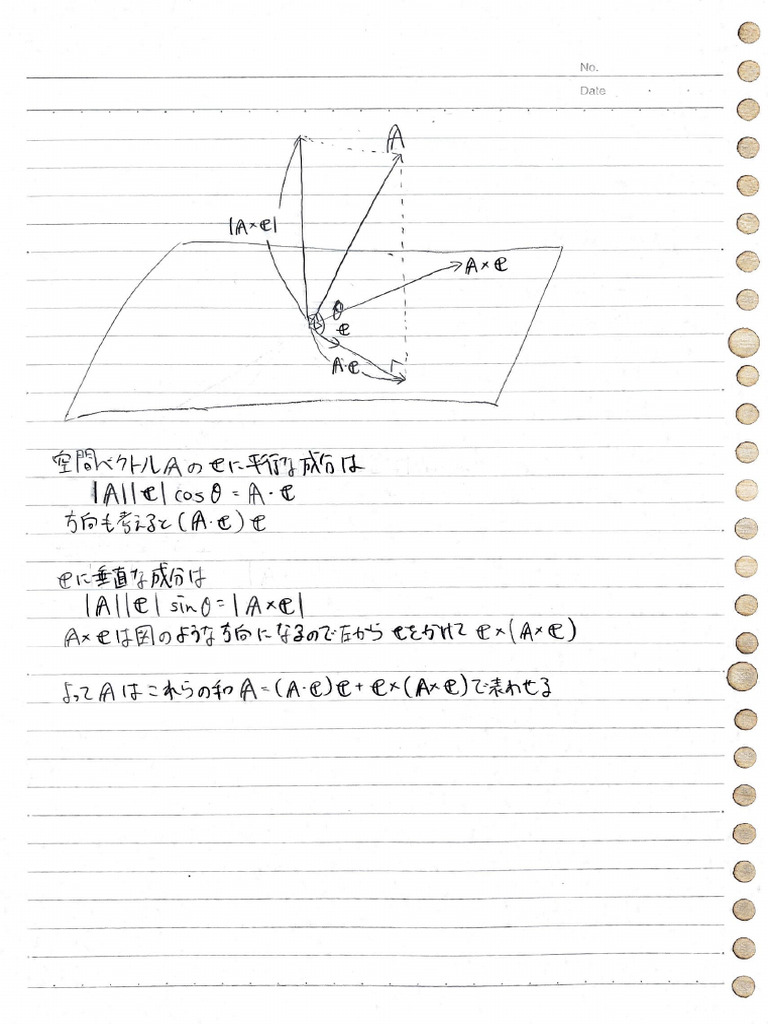 No.
Date
𝔸
|𝔸×𝕖|
𝔸×𝕖
θ
𝕖
𝔸·𝕖
空間ベクトル𝔸の𝕖に平行な成分は
|𝔸||𝕖| cosθ = 𝔸·𝕖
方向も考えると(𝔸·𝕖)𝕖
𝕖に垂直な成分は
|𝔸||𝕖| sinθ = |𝔸×𝕖|
𝔸×𝕖は図のような方向になるので左から𝕖をかけて 𝕖×(𝔸×𝕖)
よって𝔸はこれらの和𝔸=(𝔸·𝕖)𝕖+𝕖×(𝔸×𝕖)で表わせる